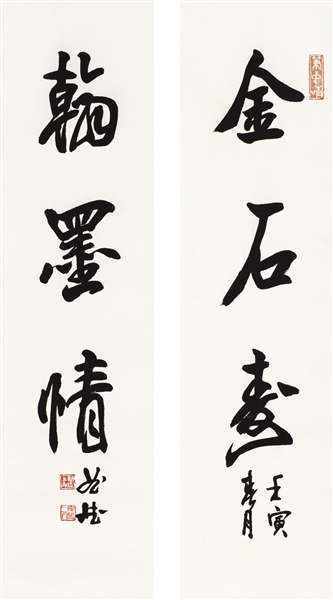 金石寿
壬寅
春月
翰墨情